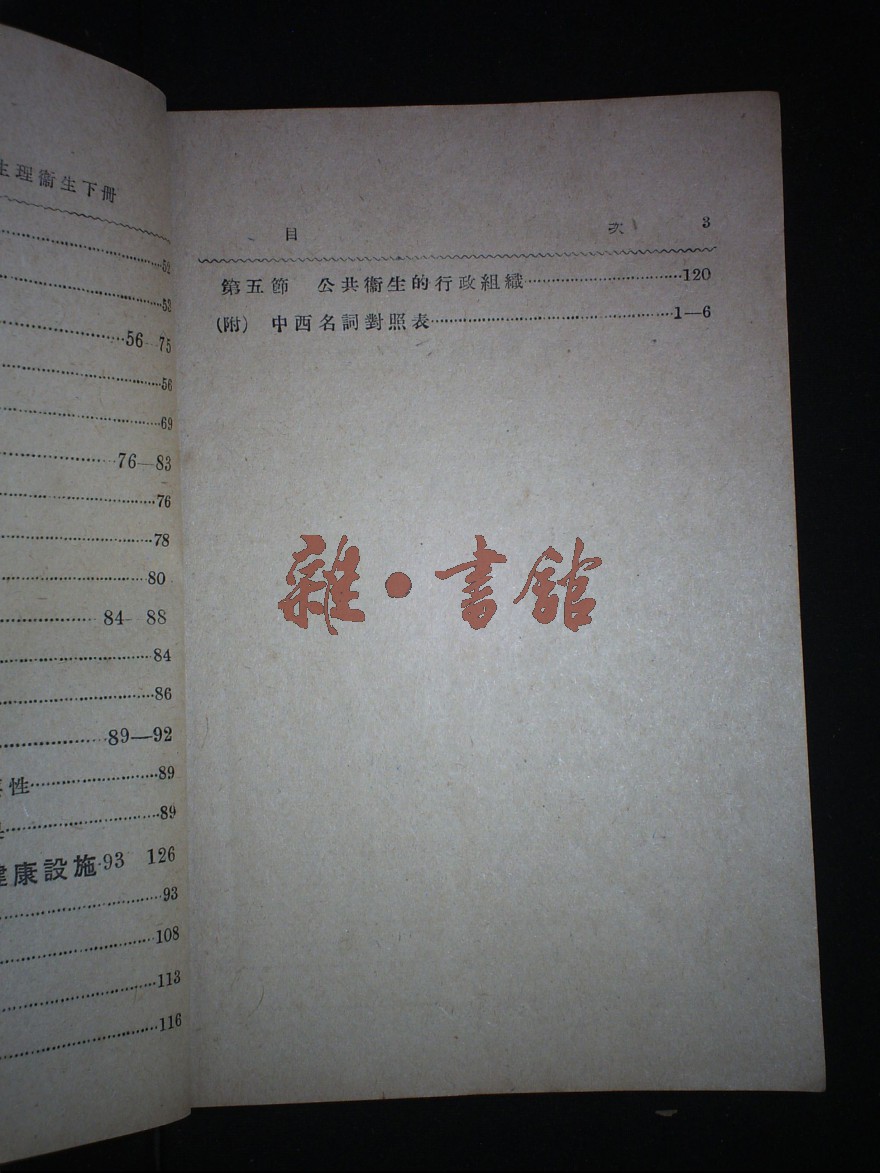 生理衞生下冊
52
53
56—75
56
69
76—83
76
78
80
84 88
84
86
89—92
性 89
89
健康設施 93 126
93
108
113
116
目 次 3
第五節 公共衞生的行政組織 120
(附) 中西名詞對照表 1—6
雜·書館